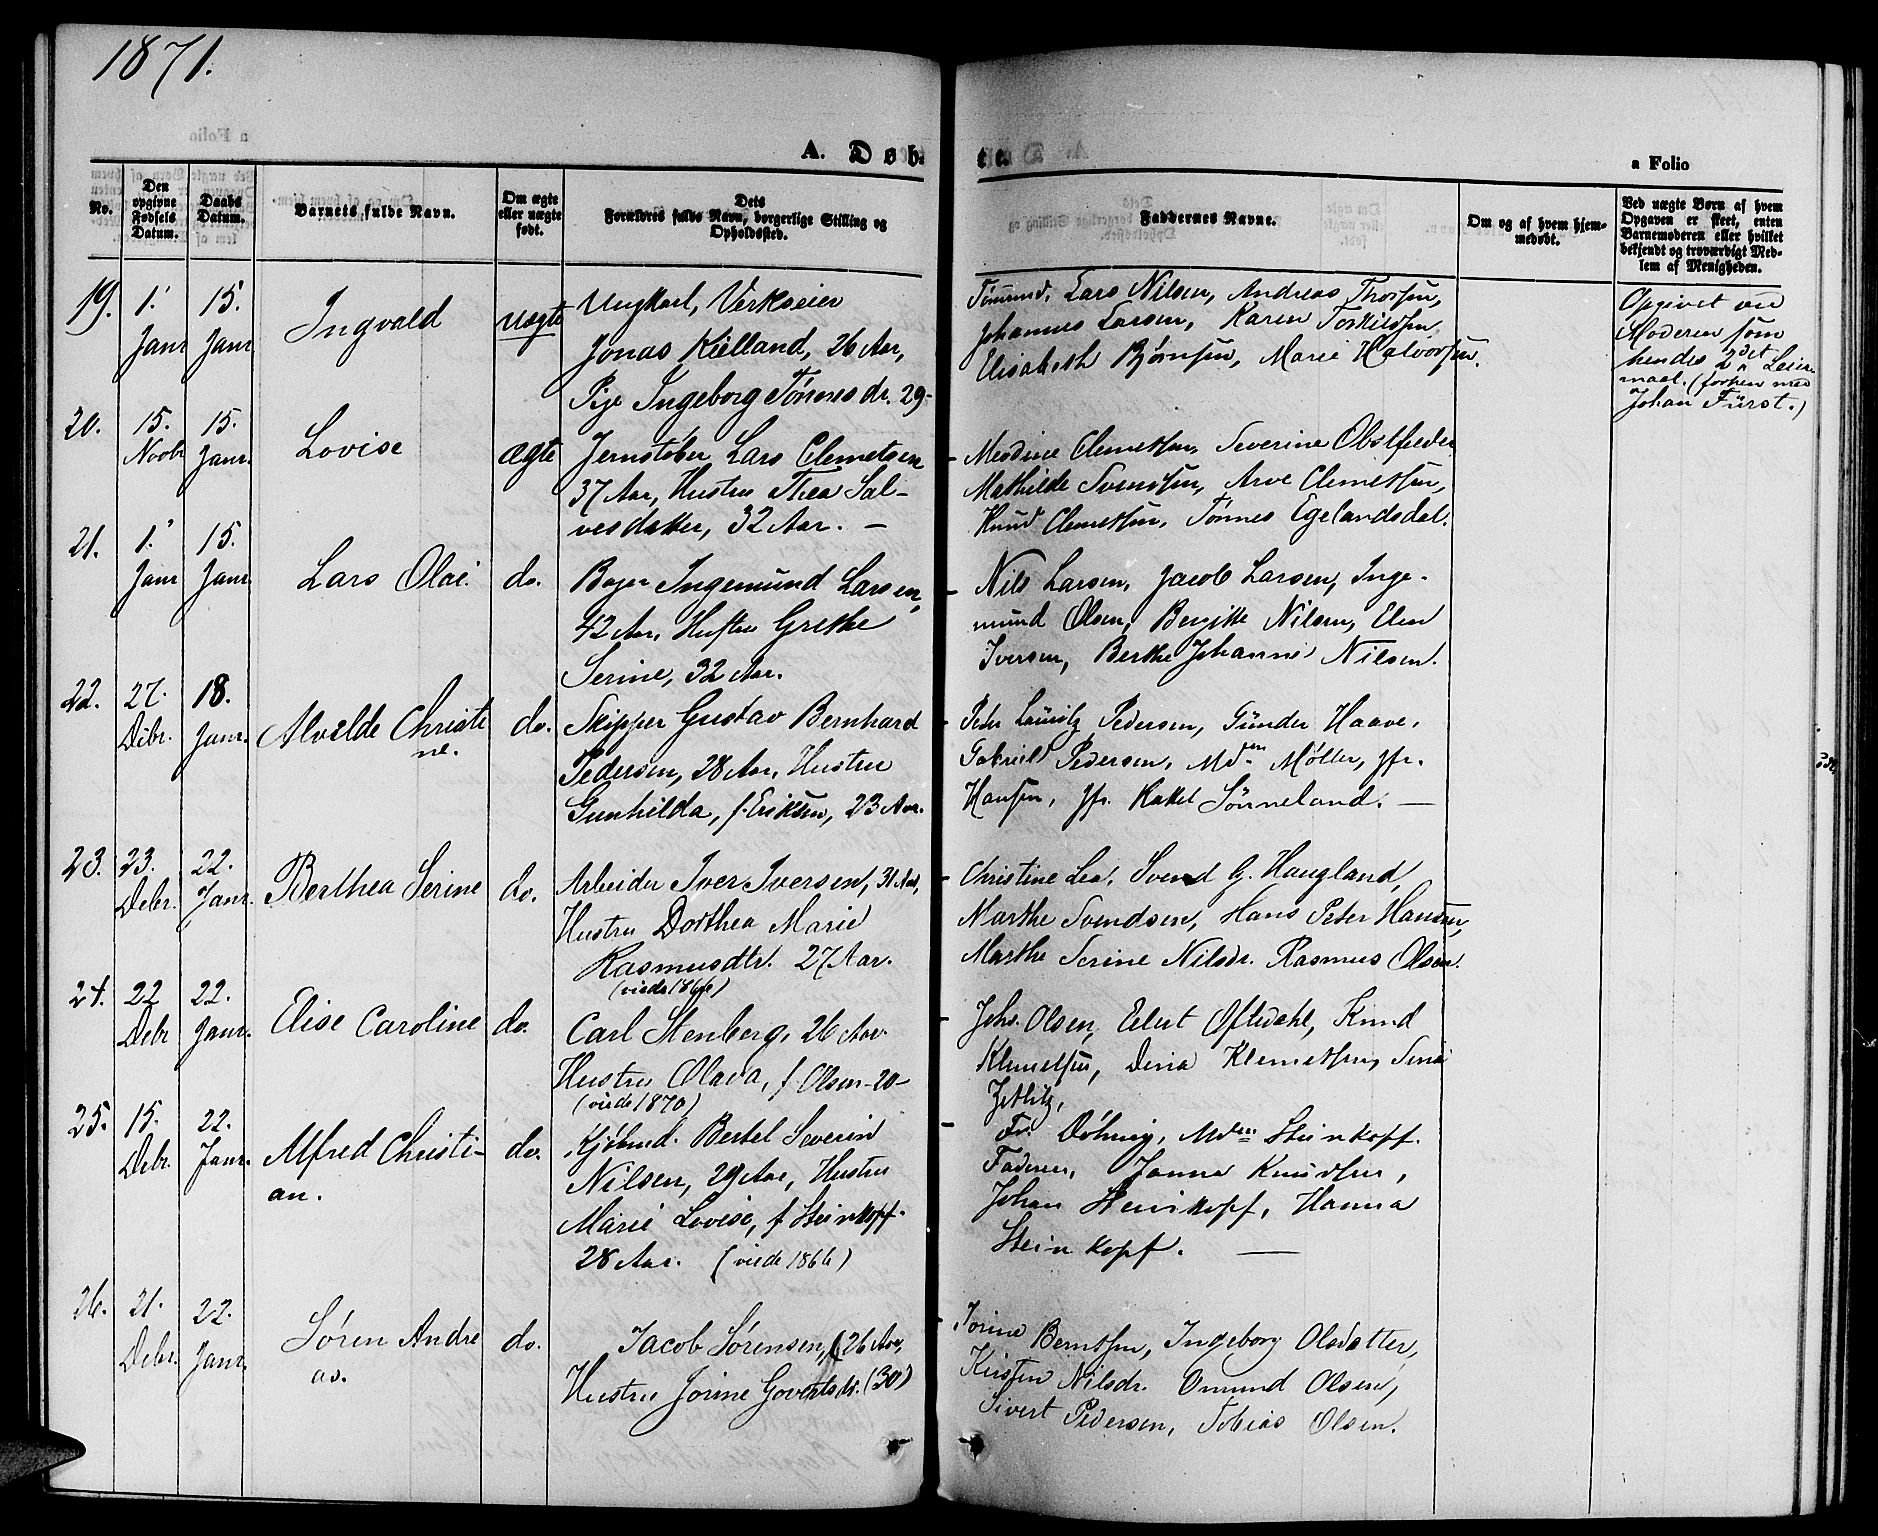 1871.
A. Døb-
te.
a Folio
No.
Den opgivne Fødsels Datum.
Daabs Datum.
Barnets fulde Navn.
Om ægte eller uægte født.
Dets Forældres fulde Navn, borgerlige Stilling og Opholdssted.
Faddernes Navne.
Om og af hvem hjemmedøbt.
Ved uægte Børn af hvem Opgaven er skeet, enten Barnemoderen eller hvilket bekjendt og troværdigt Medlem af Menigheden.
19.
1. Janr
15. Janr.
Ingvald
uægte
Ungkarl, Verkseier
Jonas Kielland, 26 Aar,
Pige Ingeborg Tønnesdr. 29-
Tømmd. Lars Nilsen, Andreas Thorsen,
Johannes Larsen, Karen Torkildsen,
Elisabeth Bjørnsen, Marie Halvorsen.
Opgivet av
Moderen som
hendes 2det Leier-
maal. (forhen med
Johan Fürst.)
20.
15. Novbr
15. Janr.
Lovise
ægte
Jernstøber Lars Clemetsen
37 Aar, Hustru Thea Sal-
vesdatter, 32 Aar. -
Clemetsen, Severine Obstfelder
Mathilde Svendsen, Arve Clemetsen,
Knud Clemetsen, Tønnes Egelandsdal.
21.
1. Janr
15. Janr.
Lars Olai.
do.
Bager Ingemund Larsen,
42 Aar, Hustru Grethe
Serine, 32 Aar.
Nils Larsen, Jacob Larsen, Inge-
mund Olsen, Bergitte Nilsen, Elen
Iversen, Berthe Johanne Nilsen.
22.
27. Debr.
18. Janr.
Alvilde Christi
ne.
do.
Skipper Gustav Bernhard
Pedersen, 28 Aar, Hustru
Gunhilda, f. Eriksen, 23 Aar.
Peder Lauritz Pedersen, Gunder Haave,
Gabriel Pedersen, Mdm Møller, Jfr.
Hansen, Jfr. Rakel Sønneland. —
23.
23. Debr.
22. Janr.
Berthea Serine
do.
Arbeider Iver Iversen, 31 Aar,
Hustru Dorthea Marie
Rasmusdtr. 27 Aar.
(viede 1866)
Christine Lea, Svend G. Haugland,
Marthe Svendsen, Hans Peter Hansen,
Marthe Serine Nilsdr. Rasmus Olsen.
24.
22 Debr
22. Janr.
Elise Caroline
do.
Carl Stenberg, 26 Aar
Hustru Olava, f Olsen - 20 -
(viede 1870)
Johs. Olsen, Eilert Oftedahl, Knud
Klemetsen, Dina Klemetsen,
Zetlitz,
25.
15. Debr.
22. Janr.
Alfred Christi-
an.
do.
Kjøbmd. Bertel Severin
Nilsen, 29 Aar, Hustru
Marie Lovise, f Steinkopf
28 Aar. (viede 1866)
Fr. Døhring, Mdm Steinkopf.
Faderen, Janna Knudsen,
Johan Steinkopf, Hanna
Steinkopf. —
26.
21. Debr.
22. Janr.
Søren Andre
as.
do.
Jacob Sørensen, (26 Aar,
Hustru Jorine Govertsdr. (30)
Jorine Berntsen, Ingeborg Olsdatter,
Kirsten Nilsdr. Omund Olsen,
Sivert Pedersen, Tobias Olsen.